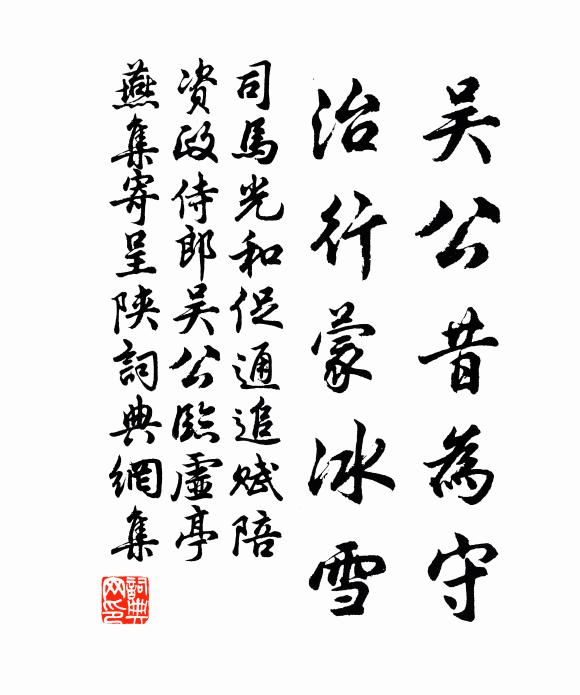 吴公昔為守
治行蒙冰雪
司馬光和促通追赋陪
资政侍郎吴公臨虛亭
燕集寄呈陝詞典網集
詞典网印